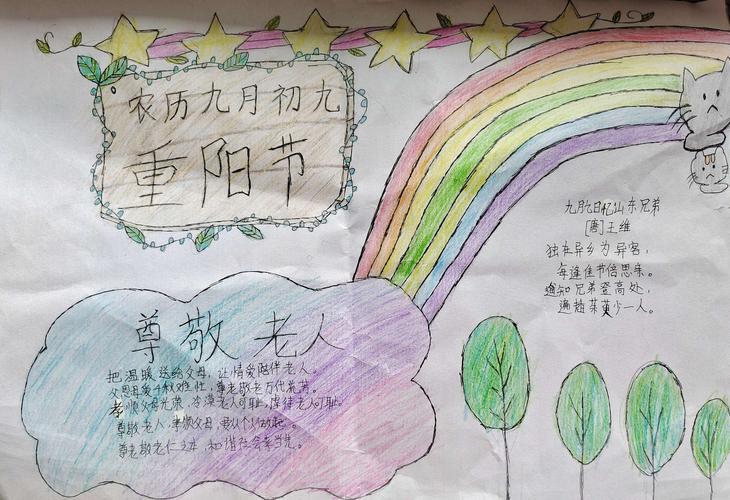 农历九月初九
重阳节
九月九日忆山东兄弟
[唐]王维
独在异乡为异客，
每逢佳节倍思亲。
遥知兄弟登高处，
遍插茱萸少一人。
尊敬老人
把温暖送给父母，让情爱陪伴老人。
父恩母爱千秋难忘，尊老敬老万代
孝顺父母光荣，冷漠老人可耻，虐待老人可耻。
尊敬老人，孝顺父母，要从个人做起。
尊老敬老仁之本，和谐社会孝当先。